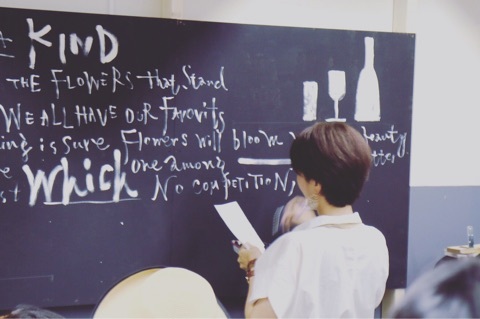 KIND
THE FLOWERS that stand
WE ALL HAVE OUR FAVORITS
is sure Flowers will bloom beauty
one among
which NO COMPETITION,